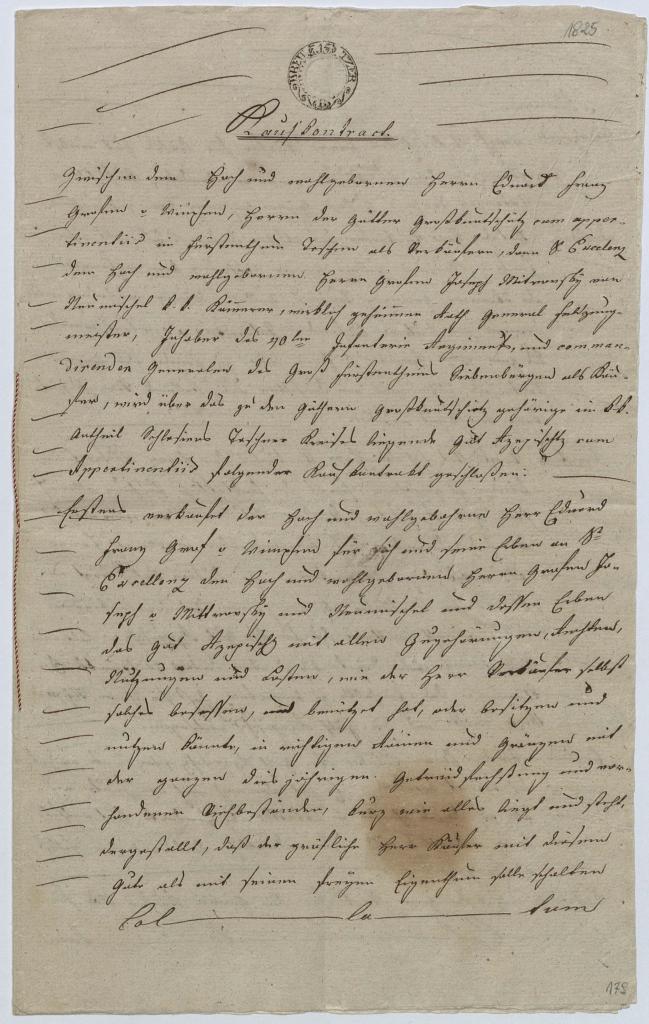 1825
DREI KREUTZER
Kaufskontract.
Zwischen dem Hoch und wohlgebornen Herrn Eduard Franz
Grafen v Wimpfen, Herrn der Gütter Großkuntschütz cum apper-
tinentiis im Fürstenthum Teschen als Verkäufern, dann Sr Excelenz
dem Hoch und wohlgebornen Herrn Grafen Joseph Mitrovsky von
Nemischel k. k. Kämerer, wirklich geheimen Rath General Feldzeug-
meister, Inhaber des 40ten Infanterie Regiments, und comman-
direnden Generalen des Groß Fürstenthums Siebenbürgen als Käu-
fer, wird über das zu den Güthern Großkuntschütz gehörige im k.k.
Antheil Schlesiens Teschner Kreises liegende Gut cum
Appertinentiis folgender Kaufskontrakt geschloßen:
Erstens verkaufet der Hoch und wohlgebohrne Herr Eduard
Franz Graf v Wimpfen für sich und seine Erben an Sr
Excellenz den Hoch und wohlgebornen Herrn Grafen Jo-
seph v Mittrovsky und Nemischel und dessen Erben
das Gut mit allen Zugehörungen, Rechten,
Nutzungen und Lasten, wie der Herr Verkäufer selbst
solches besessen, und benützet hat, oder besitzen und
nutzen könnte, in richtigen Rainen und Gränzen mit
der ganzen diesjährigen Getraid Fechsung und vor-
handenen Viehbeständen, kurz wie alles liegt und steht,
dergestallt, daß der gräfliche Herr Käufer mit diesem
Gute als mit seinem freyen Eigenthum solle schalten
Col la tum
178